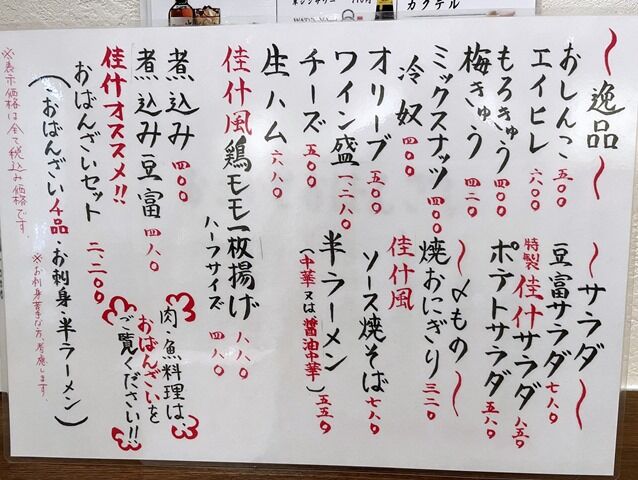 カクテル
～逸品～
おしんこ 五〇〇
エイヒレ 六〇〇
もろきゅう 四〇〇
梅きゅう 四二〇
ミックスナッツ 四〇〇
冷奴 四〇〇
オリーブ 五〇〇
ワイン盛 一二八〇
チーズ 五〇〇
生ハム 六八〇
佳什風鶏モモ一枚揚げ 八八〇
ハーフサイズ 四八〇
煮込み 四〇〇
煮込み豆富 四八〇
～サラダ～
豆富サラダ 七八〇
特製佳什サラダ 八五〇
ポテトサラダ 五八〇
～〆もの～
焼おにぎり 三二〇
佳什風
ソース焼そば 七八〇
半ラーメン 五五〇
(中華又は醤油中華)
肉・魚料理は、
おばんざいを
ご覧ください!!
佳什オススメ!!
おばんざいセット 二、二〇〇
(おばんざい4品・お刺身・半ラーメン)
※表示価格は全て税込み価格です。